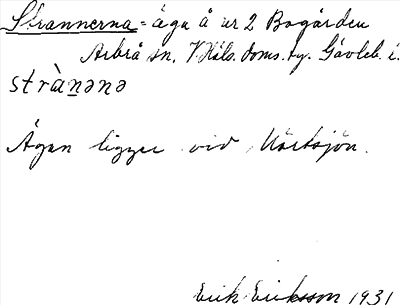 Strannerna = äga å nr 2 Bogården
Arbrå sn. V. Häls. doms. by. Gävleb. l.
strànǝnǝ
Ägan ligger vid Körtsjön.
Erik Eriksson 1931